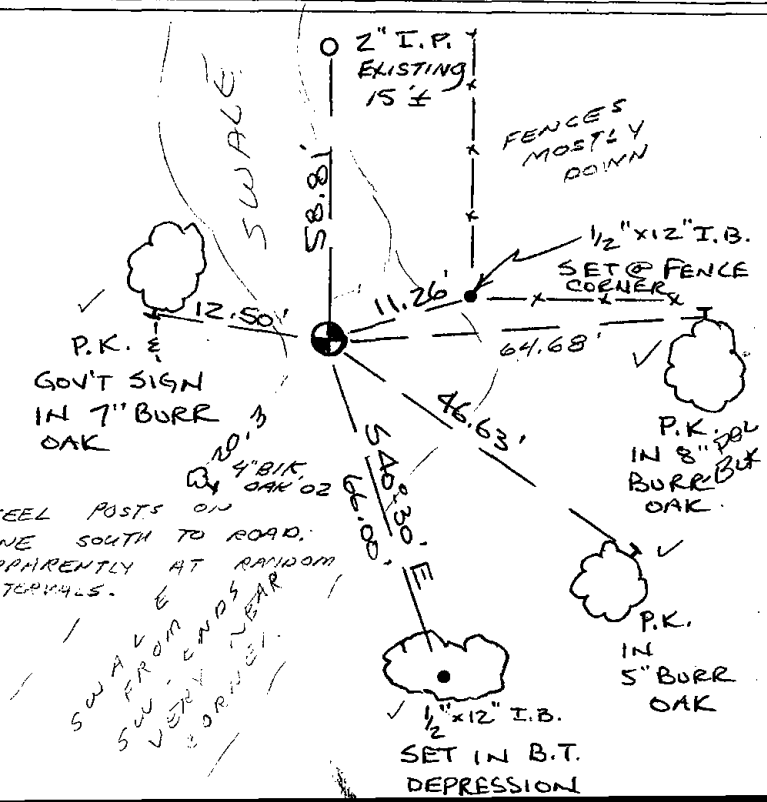 2" I.P.
EXISTING
15'±
SWALE
58.81'
FENCES
MOSTLY
DOWN
1/2"x12" I.B.
SET @ FENCE
CORNER
11.26'
12.50'
64.68'
P.K. &
GOV'T SIGN
IN 7" BURR
OAK
46.63'
P.K.
IN 8" DBL
BURR BLK
OAK
20.3
4" BLK
OAK 02
S 40°30' E
66.00'
EEL POSTS ON
NE SOUTH TO ROAD.
PPARENTLY AT RANDOM
TERVALS.
SWALE
FROM
SW. ENDS
VERY NEAR
CORNER.
P.K.
IN
5" BURR
OAK
1/2"x12" I.B.
SET IN B.T.
DEPRESSION